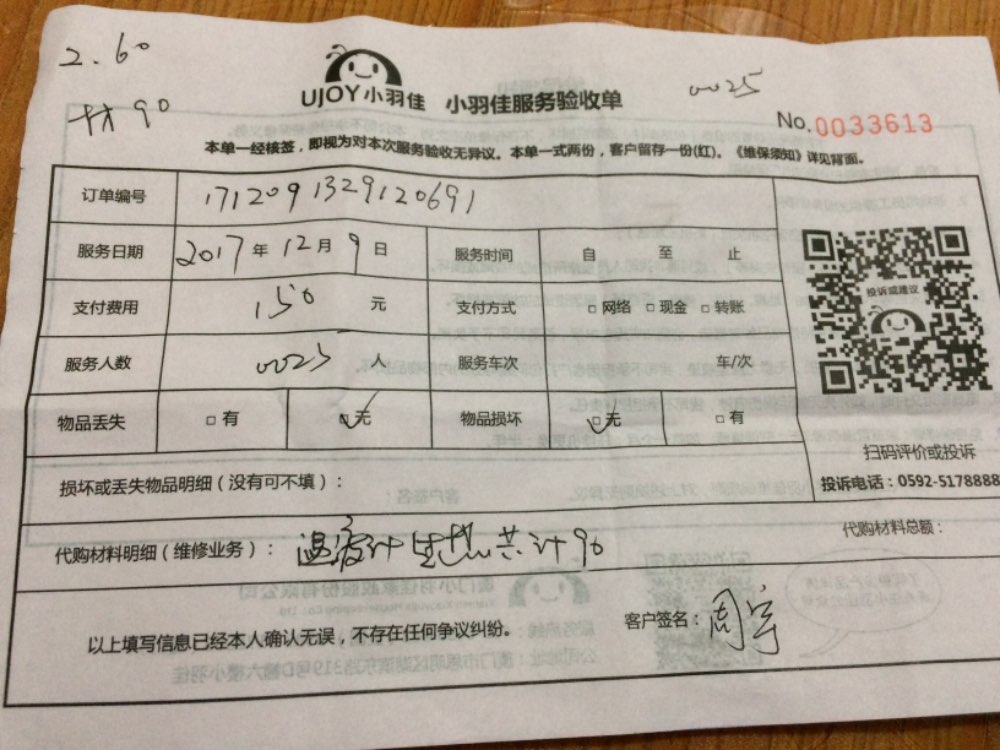 2.60
材90
UJOY小羽佳 小羽佳服务验收单
0025
No.0033613
本单一经核签，即视为对本次服务验收无异议。本单一式两份，客户留存一份(红)。《维保须知》详见背面。
订单编号 1712091329120691
服务日期 2017年12月9日 服务时间 自 至 止
支付费用 150 元 支付方式 □网络 □现金 □转账
服务人数 0025 人 服务车次 车/次
物品丢失 □有 □无 物品损坏 □无 □有
投诉或建议
扫码评价或投诉
投诉电话：0592-5178888
损坏或丢失物品明细（没有可不填）：
代购材料明细（维修业务）： 共计90
代购材料总额：
以上填写信息已经本人确认无误，不存在任何争议纠纷。
客户签名：周宇